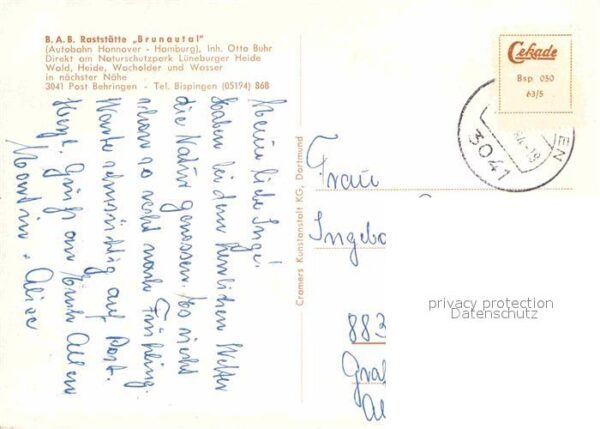 B.A.B. Raststätte „Brunautal"
(Autobahn Hannover - Hamburg), Inh. Otto Buhr
Direkt am Naturschutzpark Lüneburger Heide
Wald, Heide, Wacholder und Wasser
in nächster Nähe
3041 Post Behringen - Tel. Bispingen (05194) 868
Meine liebe Inge!
Haben bei dem herrlichen Wetter
die Natur genossen. Es riecht
schon so recht nach Frühling.
Warte sehnsüchtig auf Post.
Herzl. Grüße an Euch Allen
Cramers Kunstanstalt KG, Dortmund
Cekade
Bsp 050
63/5
EN
3041
-18
Frau
Ingebo
883
Gra
privacy protection
Datenschutz